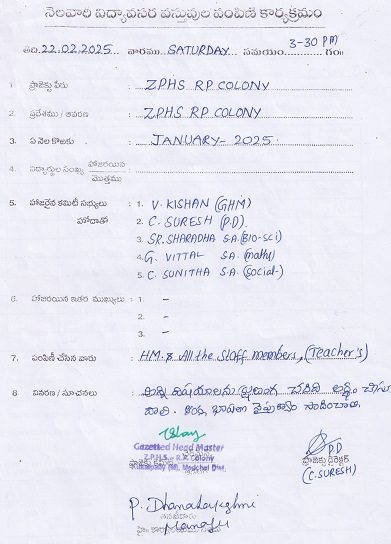 నెలవారి విద్యావసర వస్తువుల పంపిణి కార్యక్రమం
తేది: 22.02.2025 వారము SATURDAY సమయం 3-30 PM గం॥
1. ప్రాజెక్టు పేరు : ZPHS RP COLONY
2. ప్రదేశము / ఆవరణ : ZPHS RP COLONY
3. ఏ నెల కొఱకు : JANUARY-2025
4. విద్యార్థుల సంఖ్య హాజరయిన / మొత్తము :
5. హాజరైన కమిటీ సభ్యులు : 1. V. KISHAN (GHM)
హోదాతో 2. C. SURESH (P.D)
3. SR. SHARADHA S.A (BIO-SCI)
4. G. VITTAL S.A (maths)
5. C. SUNITHA S.A (Social-)
6. హాజరయిన ఇతర ముఖ్యులు : 1. -
2. -
3. -
7. పంపిణీ చేసిన వారు : HM & All the staff members, (Teacher's)
8 వివరణ / సూచనలు : అన్ని విషయాలను చదివి అర్థం
సాధించాలి.
Gazetted Head Master
Z.P.H.S. - R.P. Colony
(M), Medchel Dist.
P.D
ప్రాజెక్టు డైరెక్టర్
(C. SURESH)
P. Dhanalakshmi